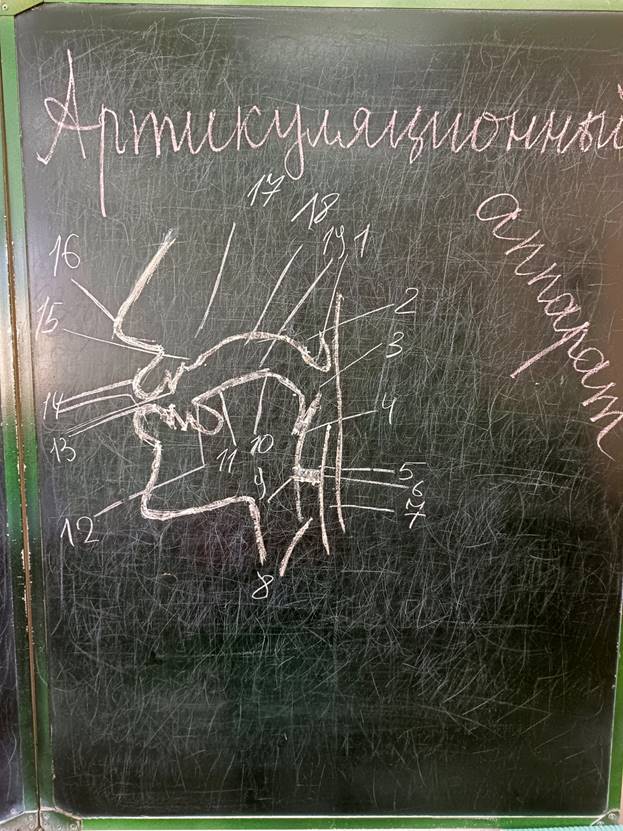 Артикуляционный
аппарат
17
18
19 1
16
2
15
3
14
4
13
11 10
5
9
6
7
12
8